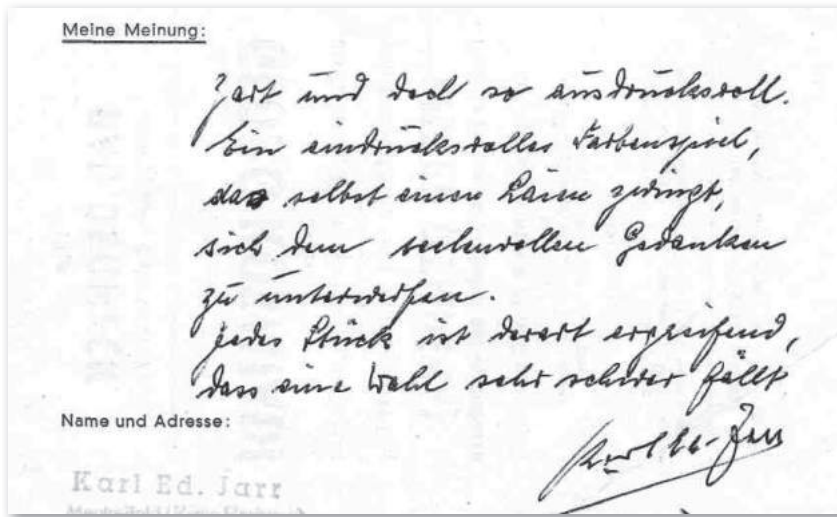 Meine Meinung:
Zart und doch so ausdrucksvoll.
Ein eindrucksvolles Farbenspiel,
das selbst einen Laien zwingt,
sich dem seelenvollen Gedanken
zu unterwerfen.
Jedes Stück ist derart ergreifend,
dass eine Wahl sehr schwer fällt
Name und Adresse:
Karl Ed. Jarr
Karl Ed. Jarr